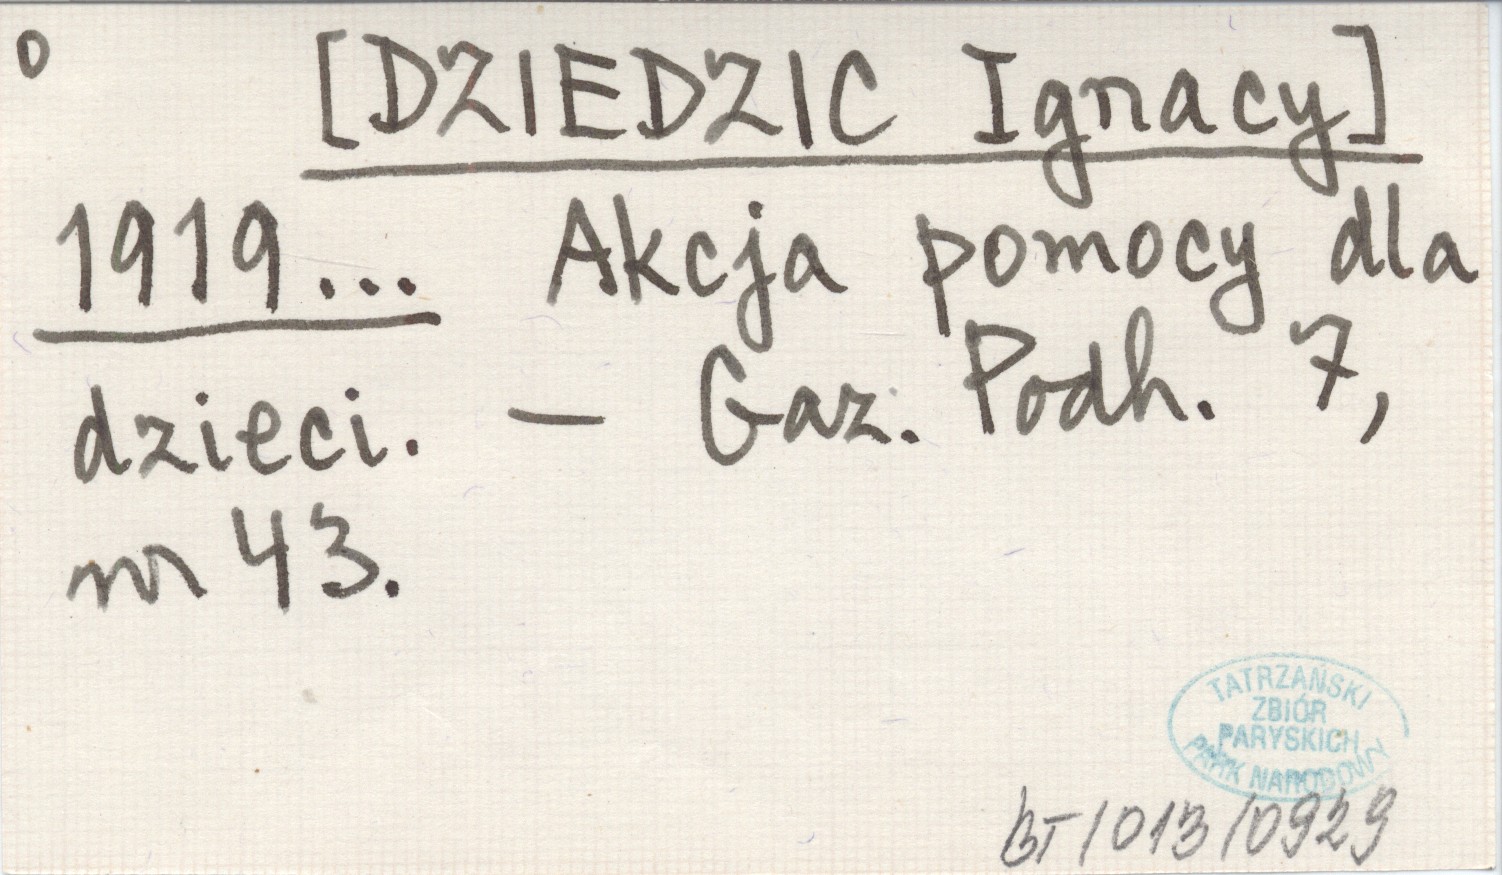 o [DZIEDZIC Ignacy]
1919... Akcja pomocy dla
dzieci. — Gaz. Podh. 7,
nr 43.
TATRZAŃSKI
ZBIÓR
PARYSKICH
PARK NARODOWY
BT/013/0929